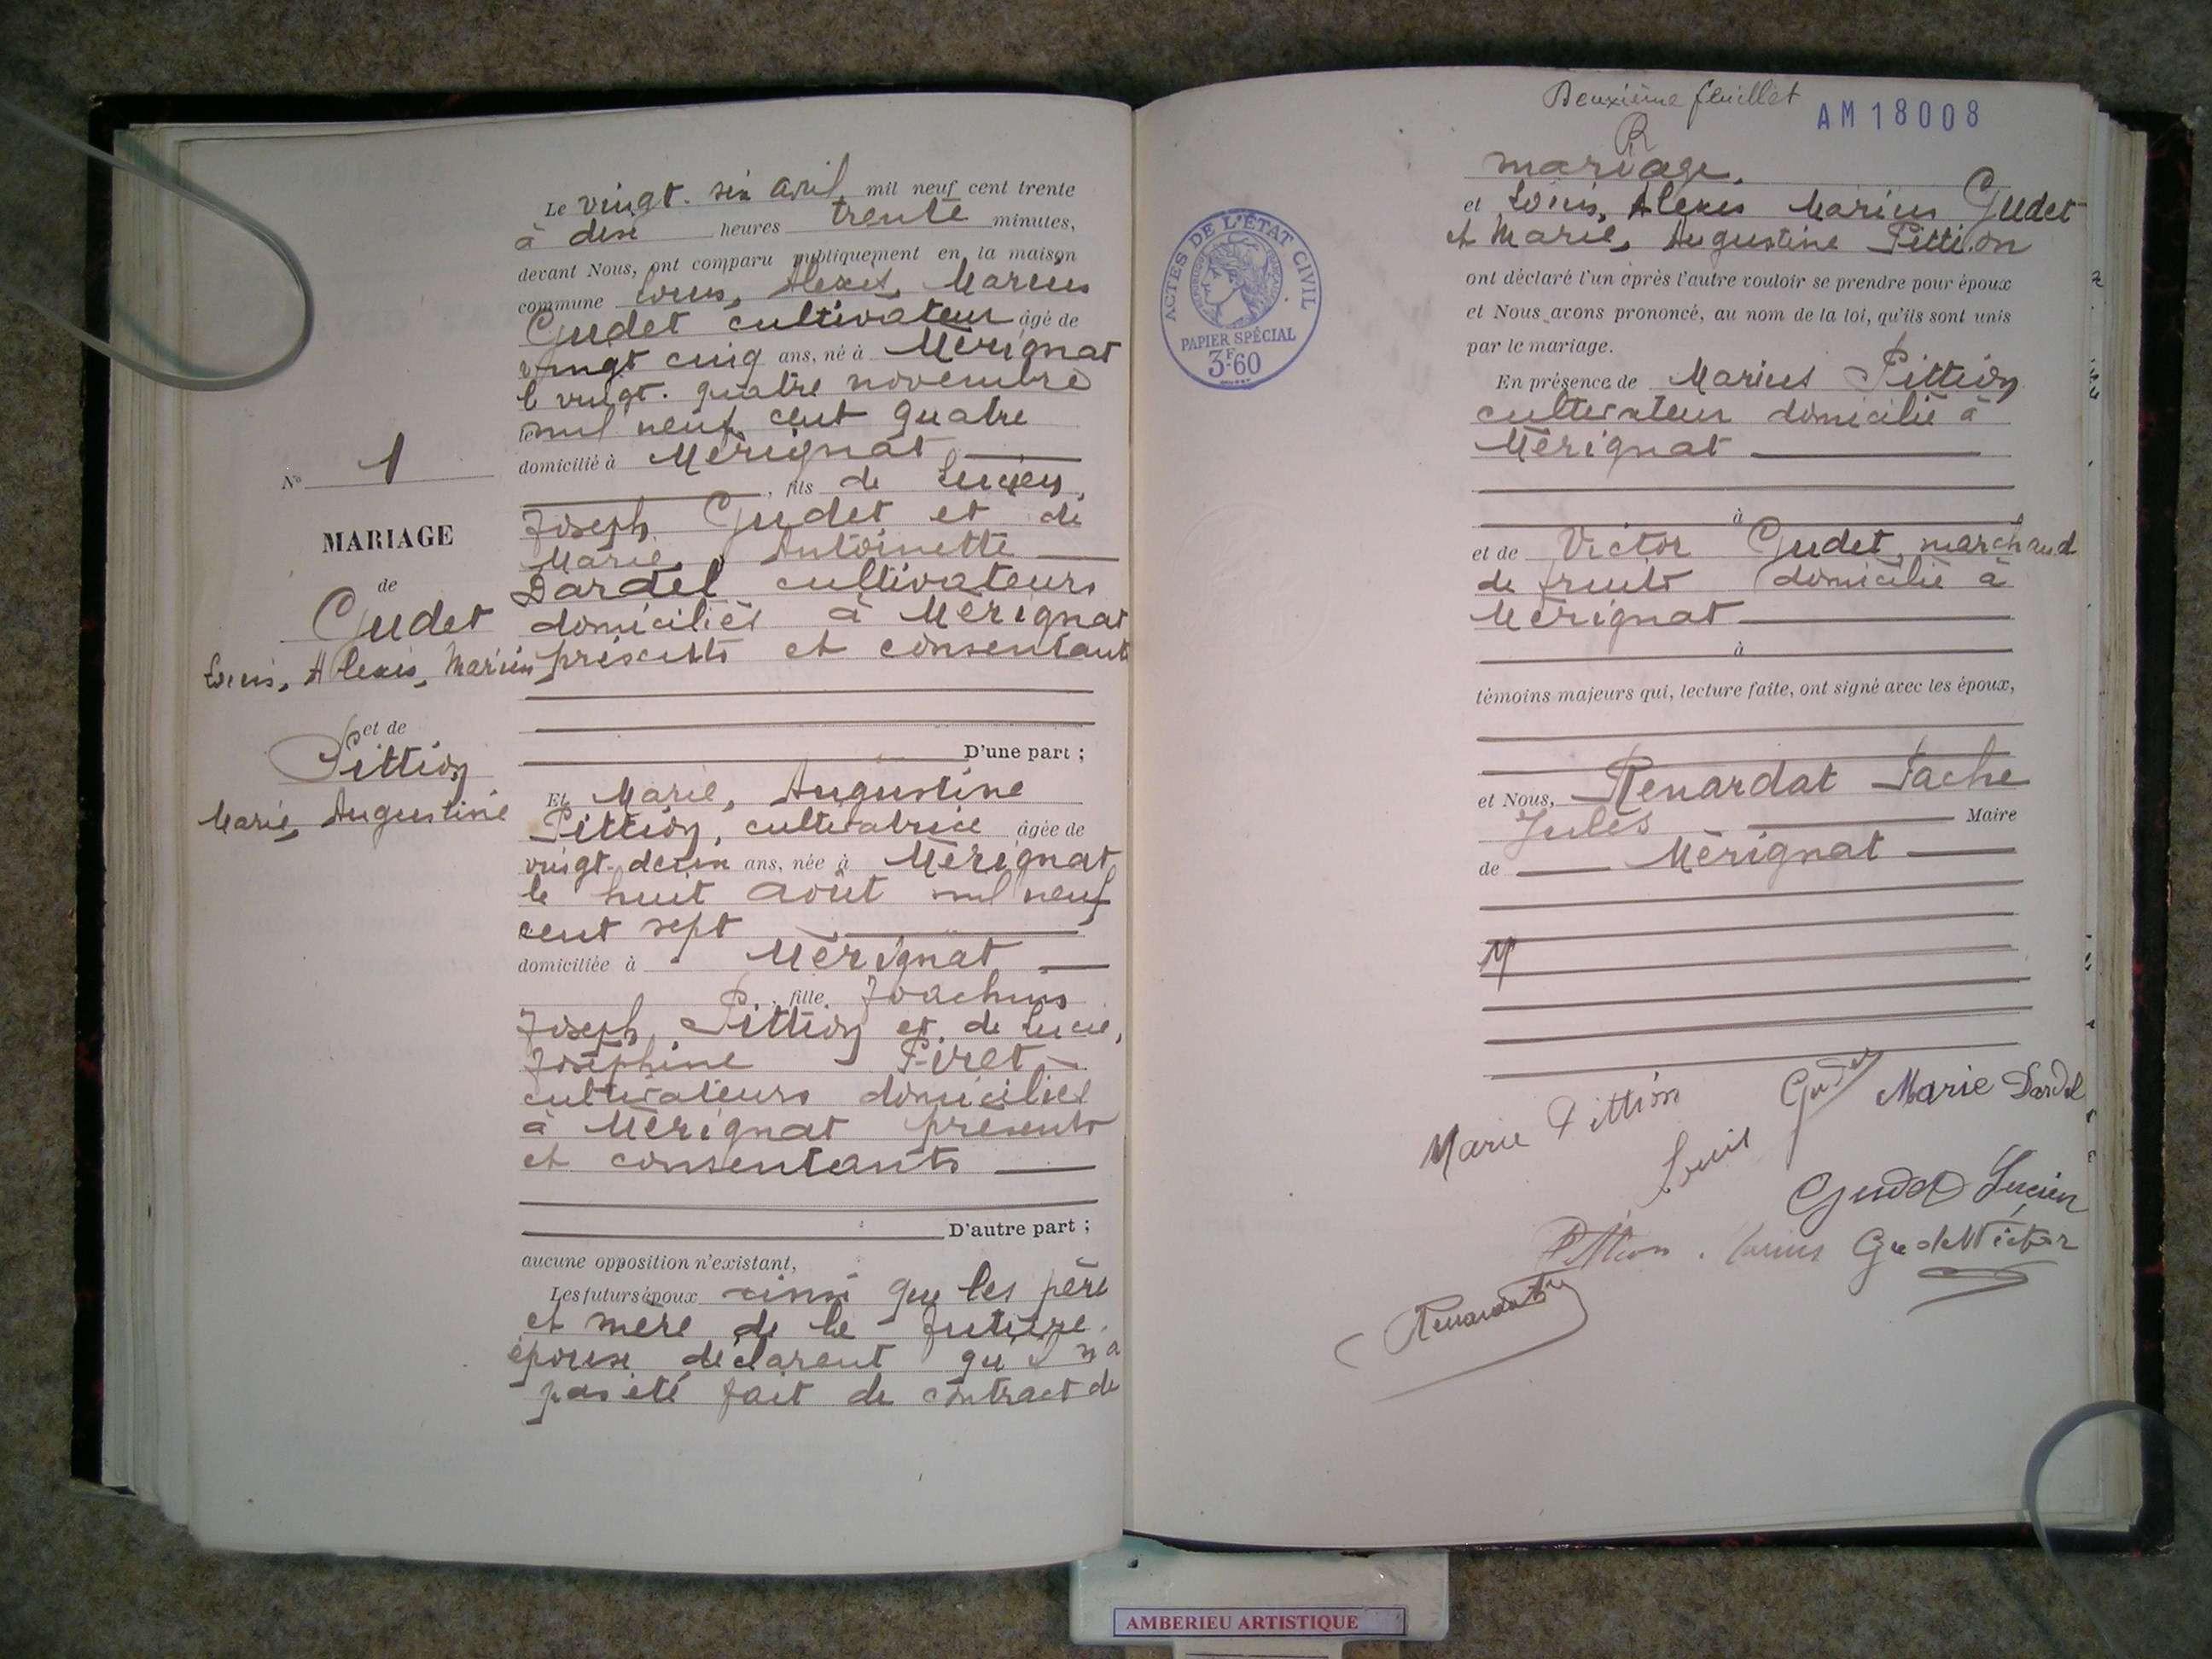 Le vingt. six avril mil neuf cent trente
à dix heures trente minutes,
devant Nous, ont comparu publiquement en la maison
commune Louis, Alexis, Marius
Gudet cultivateur âgé de
vingt cinq ans, né à Mérignat
le vingt. quatre novembre
le mil neuf cent quatre
domicilié à Mérignat
, fils de Lucien,
Joseph Gudet et de
Marie, Antoinette
Dardel cultivateurs
domiciliés à Mérignat
présents et consentant
D'une part ;
Et Marie, Augustine
Pittion, cultivatrice âgée de
vingt-deux ans, née à Mérignat
le huit août mil neuf
cent sept
domiciliée à Mérignat
, fille Joachim
Joseph Pittion et de Lucie,
Joséphine Firet
cultivateurs domiciliés
à Mérignat présents
et consentants
D'autre part ;
aucune opposition n'existant,
Les futurs époux ainsi que les père
et mère de la future
épouse déclarent qu'il n'a
pas été fait de contract de
N° 1
MARIAGE
de
Gudet
Louis, Alexis, Marius
et de
Pittion
Marie, Augustine
Deuxième feuillet
AM18008
mariage.
et Louis, Alexis Marius Gudet
et Marie, Augustine Pittion
ont déclaré l'un après l'autre vouloir se prendre pour époux
et Nous avons prononcé, au nom de la loi, qu'ils sont unis
par le mariage.
En présence de Marius Pittion
cultivateur domicilié à
Mérignat
à
et de Victor Gudet, marchand
de fruits domicilié à
Mérignat
à
témoins majeurs qui, lecture faite, ont signé avec les époux,
et Nous, Renardat Fache
Jules Maire
de Mérignat
ACTES DE L'ÉTAT CIVIL
PAPIER SPÉCIAL
3F60
Marie Pittion
Gudet
Louis
Marie Dardel
Gudet Lucien
Pittion Marius
Gudet Victor
AMBERIEU ARTISTIQUE